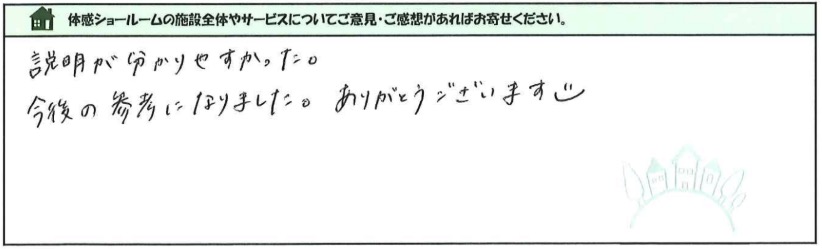 体感ショールームの施設全体やサービスについてご意見・ご感想があればお寄せください。
説明が分かりやすかった。
今後の参考になりました。ありがとうございます